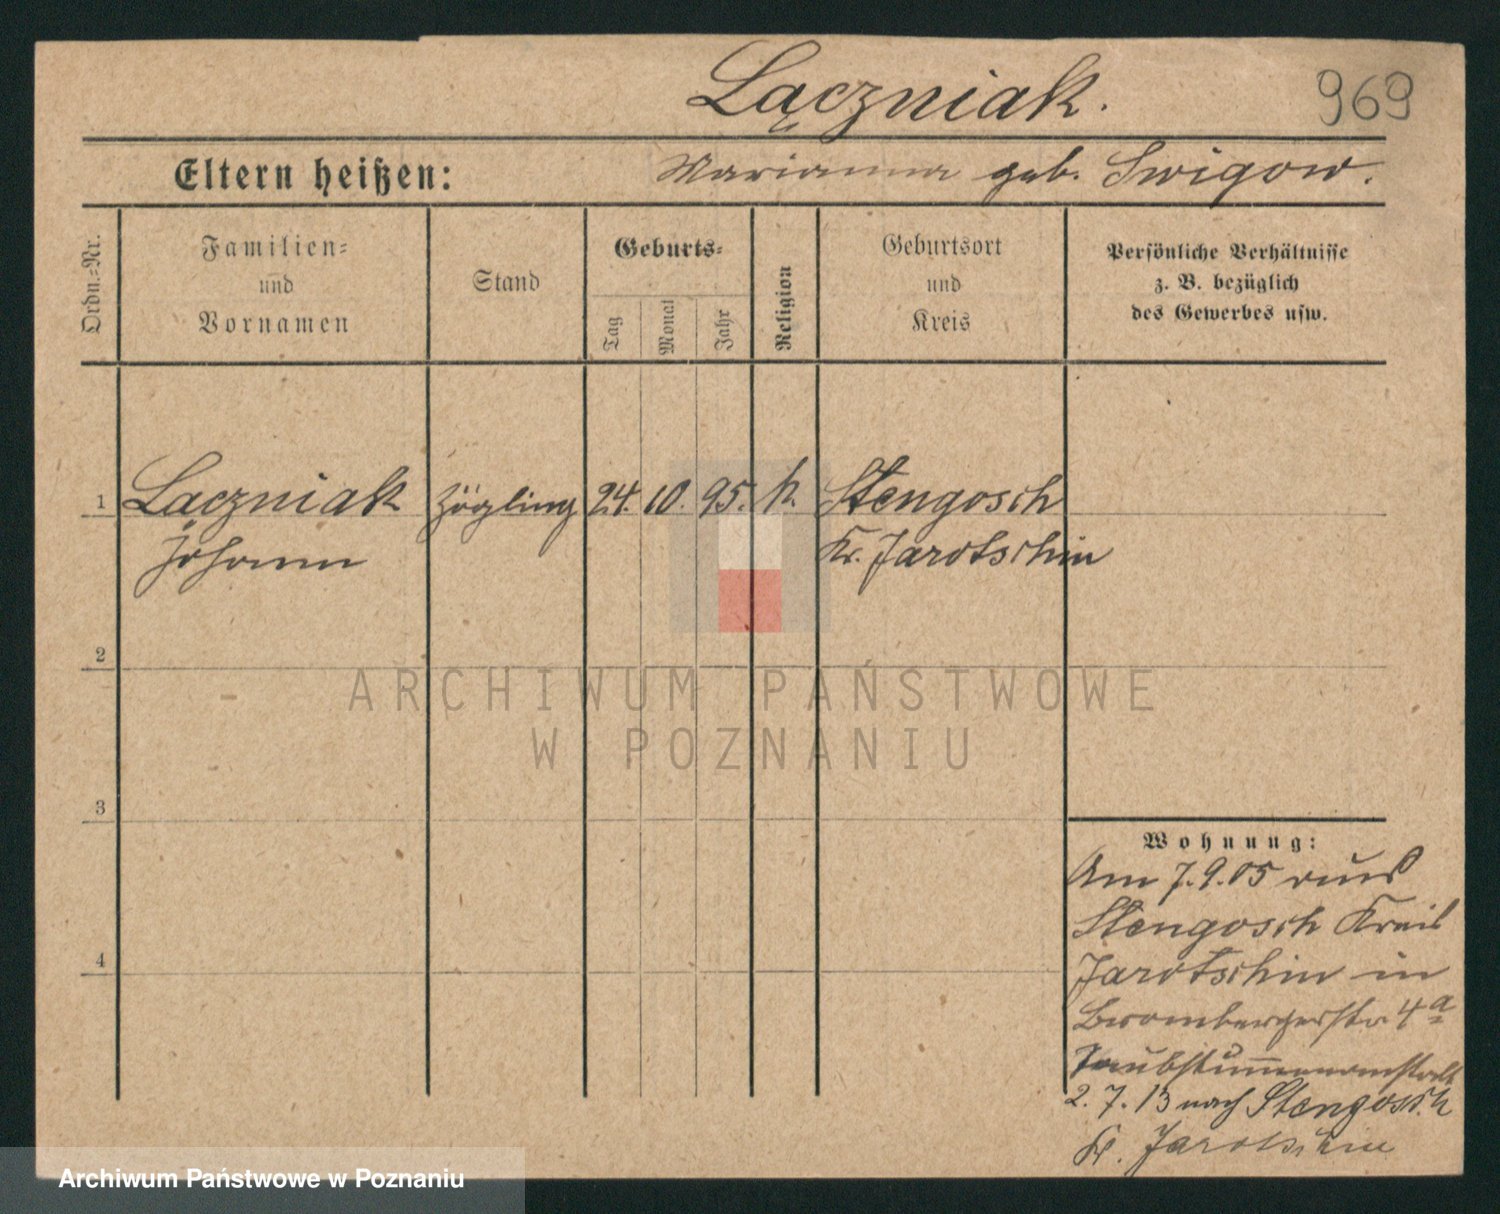 Lączniak.
969
Eltern heißen:
Marianna geb. Swigow.
Ordn.-Nr.
Familien-
und
Vornamen
Stand
Geburts-
Tag
Monat
Jahr
Religion
Geburtsort
und
Kreis
Persönliche Verhältnisse
z. B. bezüglich
des Gewerbes usw.
1 Lączniak Zögling 24. 10. 95. k. Stengosch
Johann Kr. Jarotschin
2
3
4
Wohnung:
Am 7.9.05 aus
Stengosch Kreis
Jarotschin in
Brombergerstr. 4a
Taubstummenanstalt
2. 7. 13 nach Stengosch
Kr. Jarotschin
ARCHIWUM PAŃSTWOWE
W POZNANIU
Archiwum Państwowe w Poznaniu